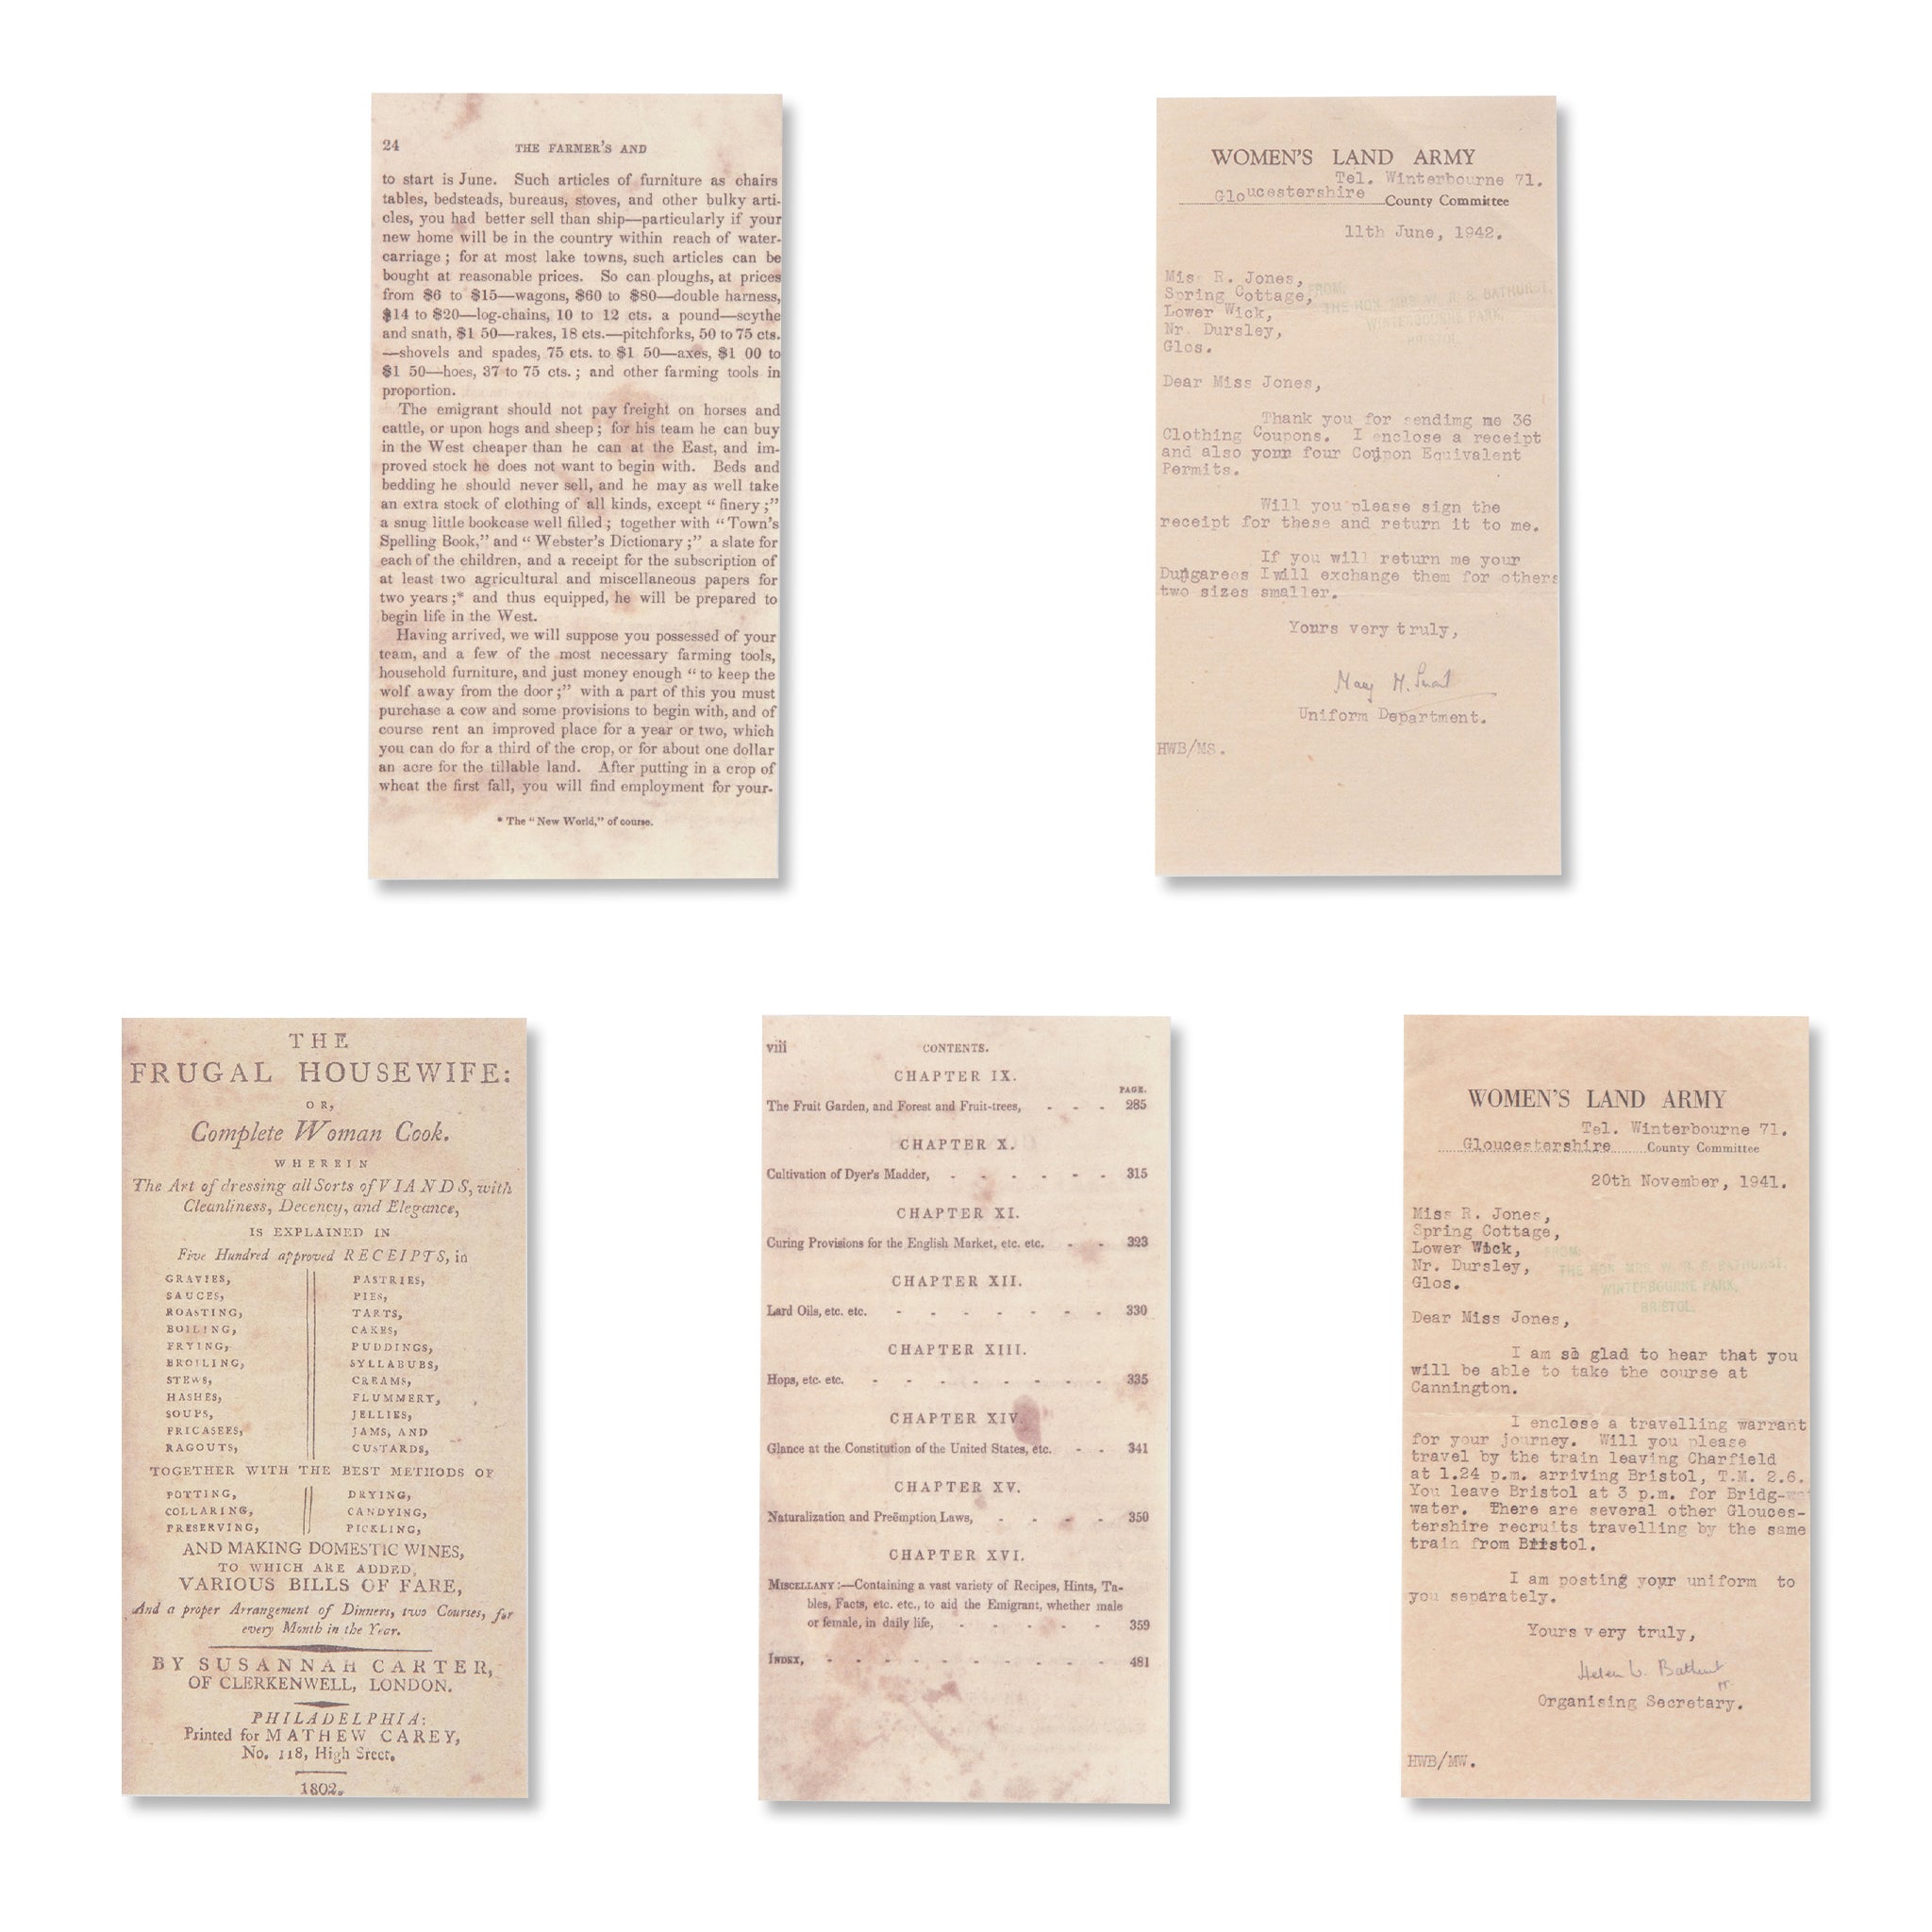 24 THE FARMER'S AND
to start is June. Such articles of furniture as chairs
tables, bedsteads, bureaus, stoves, and other bulky arti-
cles, you had better sell than ship—particularly if your
new home will be in the country within reach of water-
carriage; for at most lake towns, such articles can be
bought at reasonable prices. So can ploughs, at prices
from $6 to $15—wagons, $60 to $80—double harness,
$14 to $20—log-chains, 10 to 12 cts. a pound—scythe
and snath, $1 50—rakes, 18 cts.—pitchforks, 50 to 75 cts.
—shovels and spades, 75 cts. to $1 50—axes, $1 00 to
$1 50—hoes, 37 to 75 cts.; and other farming tools in
proportion.
The emigrant should not pay freight on horses and
cattle, or upon hogs and sheep; for his team he can buy
in the West cheaper than he can at the East, and im-
proved stock he does not want to begin with. Beds and
bedding he should never sell, and he may as well take
an extra stock of clothing of all kinds, except "finery;"
a snug little bookcase well filled; together with "Town's
Spelling Book," and "Webster's Dictionary;" a slate for
each of the children, and a receipt for the subscription of
at least two agricultural and miscellaneous papers for
two years;* and thus equipped, he will be prepared to
begin life in the West.
Having arrived, we will suppose you possessed of your
team, and a few of the most necessary farming tools,
household furniture, and just money enough "to keep the
wolf away from the door;" with a part of this you must
purchase a cow and some provisions to begin with, and of
course rent an improved place for a year or two, which
you can do for a third of the crop, or for about one dollar
an acre for the tillable land. After putting in a crop of
wheat the first fall, you will find employment for your-
* The "New World," of course.
WOMEN'S LAND ARMY
Tel. Winterbourne 71.
Gloucestershire County Committee
11th June, 1942.
Miss R. Jones,
Spring Cottage,
Lower Wick,
Nr. Dursley,
Glos.
FROM:
THE HON. MRS. W. R. S. BATHURST,
WINTERBOURNE PARK,
BRISTOL.
Dear Miss Jones,
Thank you for sendimg me 36
Clothing Coupons. I enclose a receipt
and also your four Coupon Equivalent
Permits.
Will you please sign the
receipt for these and return it to me.
If you will return me your
Dungarees I will exchange them for others
two sizes smaller.
Yours very truly,
Mary M.
Uniform Department.
HWB/MS.
THE
FRUGAL HOUSEWIFE:
OR,
Complete Woman Cook.
WHEREIN
The Art of dressing all Sorts of VIANDS, with
Cleanliness, Decency, and Elegance,
IS EXPLAINED IN
Five Hundred approved RECEIPTS, in
GRAVIES, PASTRIES,
SAUCES, PIES,
ROASTING, TARTS,
BOILING, CAKES,
FRYING, PUDDINGS,
BROILING, SYLLABUBS,
STEWS, CREAMS,
HASHES, FLUMMERY,
SOUPS, JELLIES,
FRICASEES, JAMS, AND
RAGOUTS, CUSTARDS,
TOGETHER WITH THE BEST METHODS OF
POTTING, DRYING,
COLLARING, CANDYING,
PRESERVING, PICKLING,
AND MAKING DOMESTIC WINES,
TO WHICH ARE ADDED,
VARIOUS BILLS OF FARE,
And a proper Arrangement of Dinners, two Courses, for
every Month in the Year.
BY SUSANNAH CARTER,
OF CLERKENWELL, LONDON.
PHILADELPHIA:
Printed for MATHEW CAREY,
No. 118, High Sreet.
1802.
viii CONTENTS.
CHAPTER IX.
PAGE.
The Fruit Garden, and Forest and Fruit-trees, - - - 285
CHAPTER X.
Cultivation of Dyer's Madder, - - - - - - 315
CHAPTER XI.
Curing Provisions for the English Market, etc. etc. - - 323
CHAPTER XII.
Lard Oils, etc. etc. - - - - - - - 330
CHAPTER XIII.
Hops, etc. etc. - - - - - - - - 335
CHAPTER XIV.
Glance at the Constitution of the United States, etc. - - 341
CHAPTER XV.
Naturalization and Preëmption Laws, - - - - 350
CHAPTER XVI.
MISCELLANY:—Containing a vast variety of Recipes, Hints, Ta-
bles, Facts, etc. etc., to aid the Emigrant, whether male
or female, in daily life, - - - - - 359
INDEX, - - - - - - - - - 481
WOMEN'S LAND ARMY
Tel. Winterbourne 71.
Gloucestershire County Committee
20th November, 1941.
Miss R. Jones,
Spring Cottage,
Lower Wick,
Nr. Dursley,
Glos.
FROM:
THE HON. MRS. W. R. S. BATHURST,
WINTERBOURNE PARK,
BRISTOL.
Dear Miss Jones,
I am so glad to hear that you
will be able to take the course at
Cannington.
I enclose a travelling warrant
for your journey. Will you please
travel by the train leaving Charfield
at 1.24 p.m. arriving Bristol, T.M. 2.6.
You leave Bristol at 3 p.m. for Bridg-
water. There are several other Glouces-
tershire recruits travelling by the same
train from Bristol.
I am posting your uniform to
you separately.
Yours very truly,
Helen W. Bathurst
Organising Secretary.
HWB/MW.